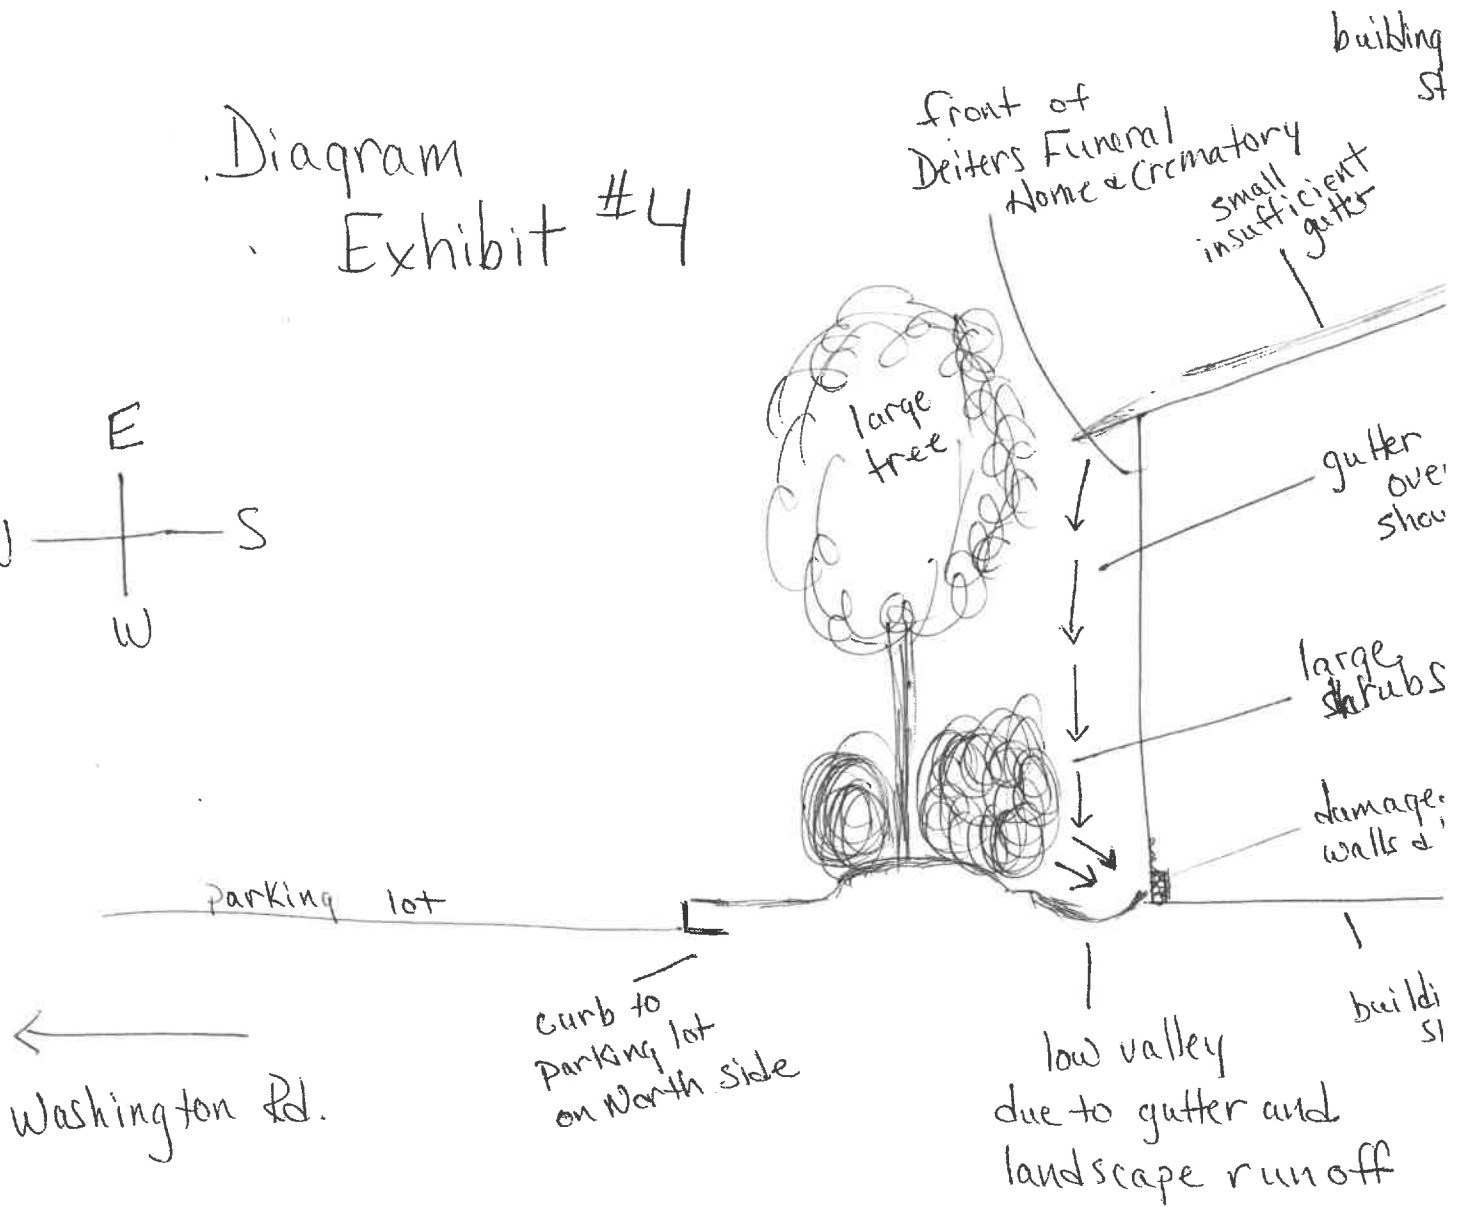 building
st
Diagram
Exhibit #4
front of
Deiters Funeral
Home & Crematory
small
insufficient
gutter
large
tree
E
S
W
gutter
ove
show
large
shrubs
damage
walls &
parking lot
curb to
parking lot
on North side
Washington Rd.
low valley
due to gutter and
landscape runoff
buildi
sl